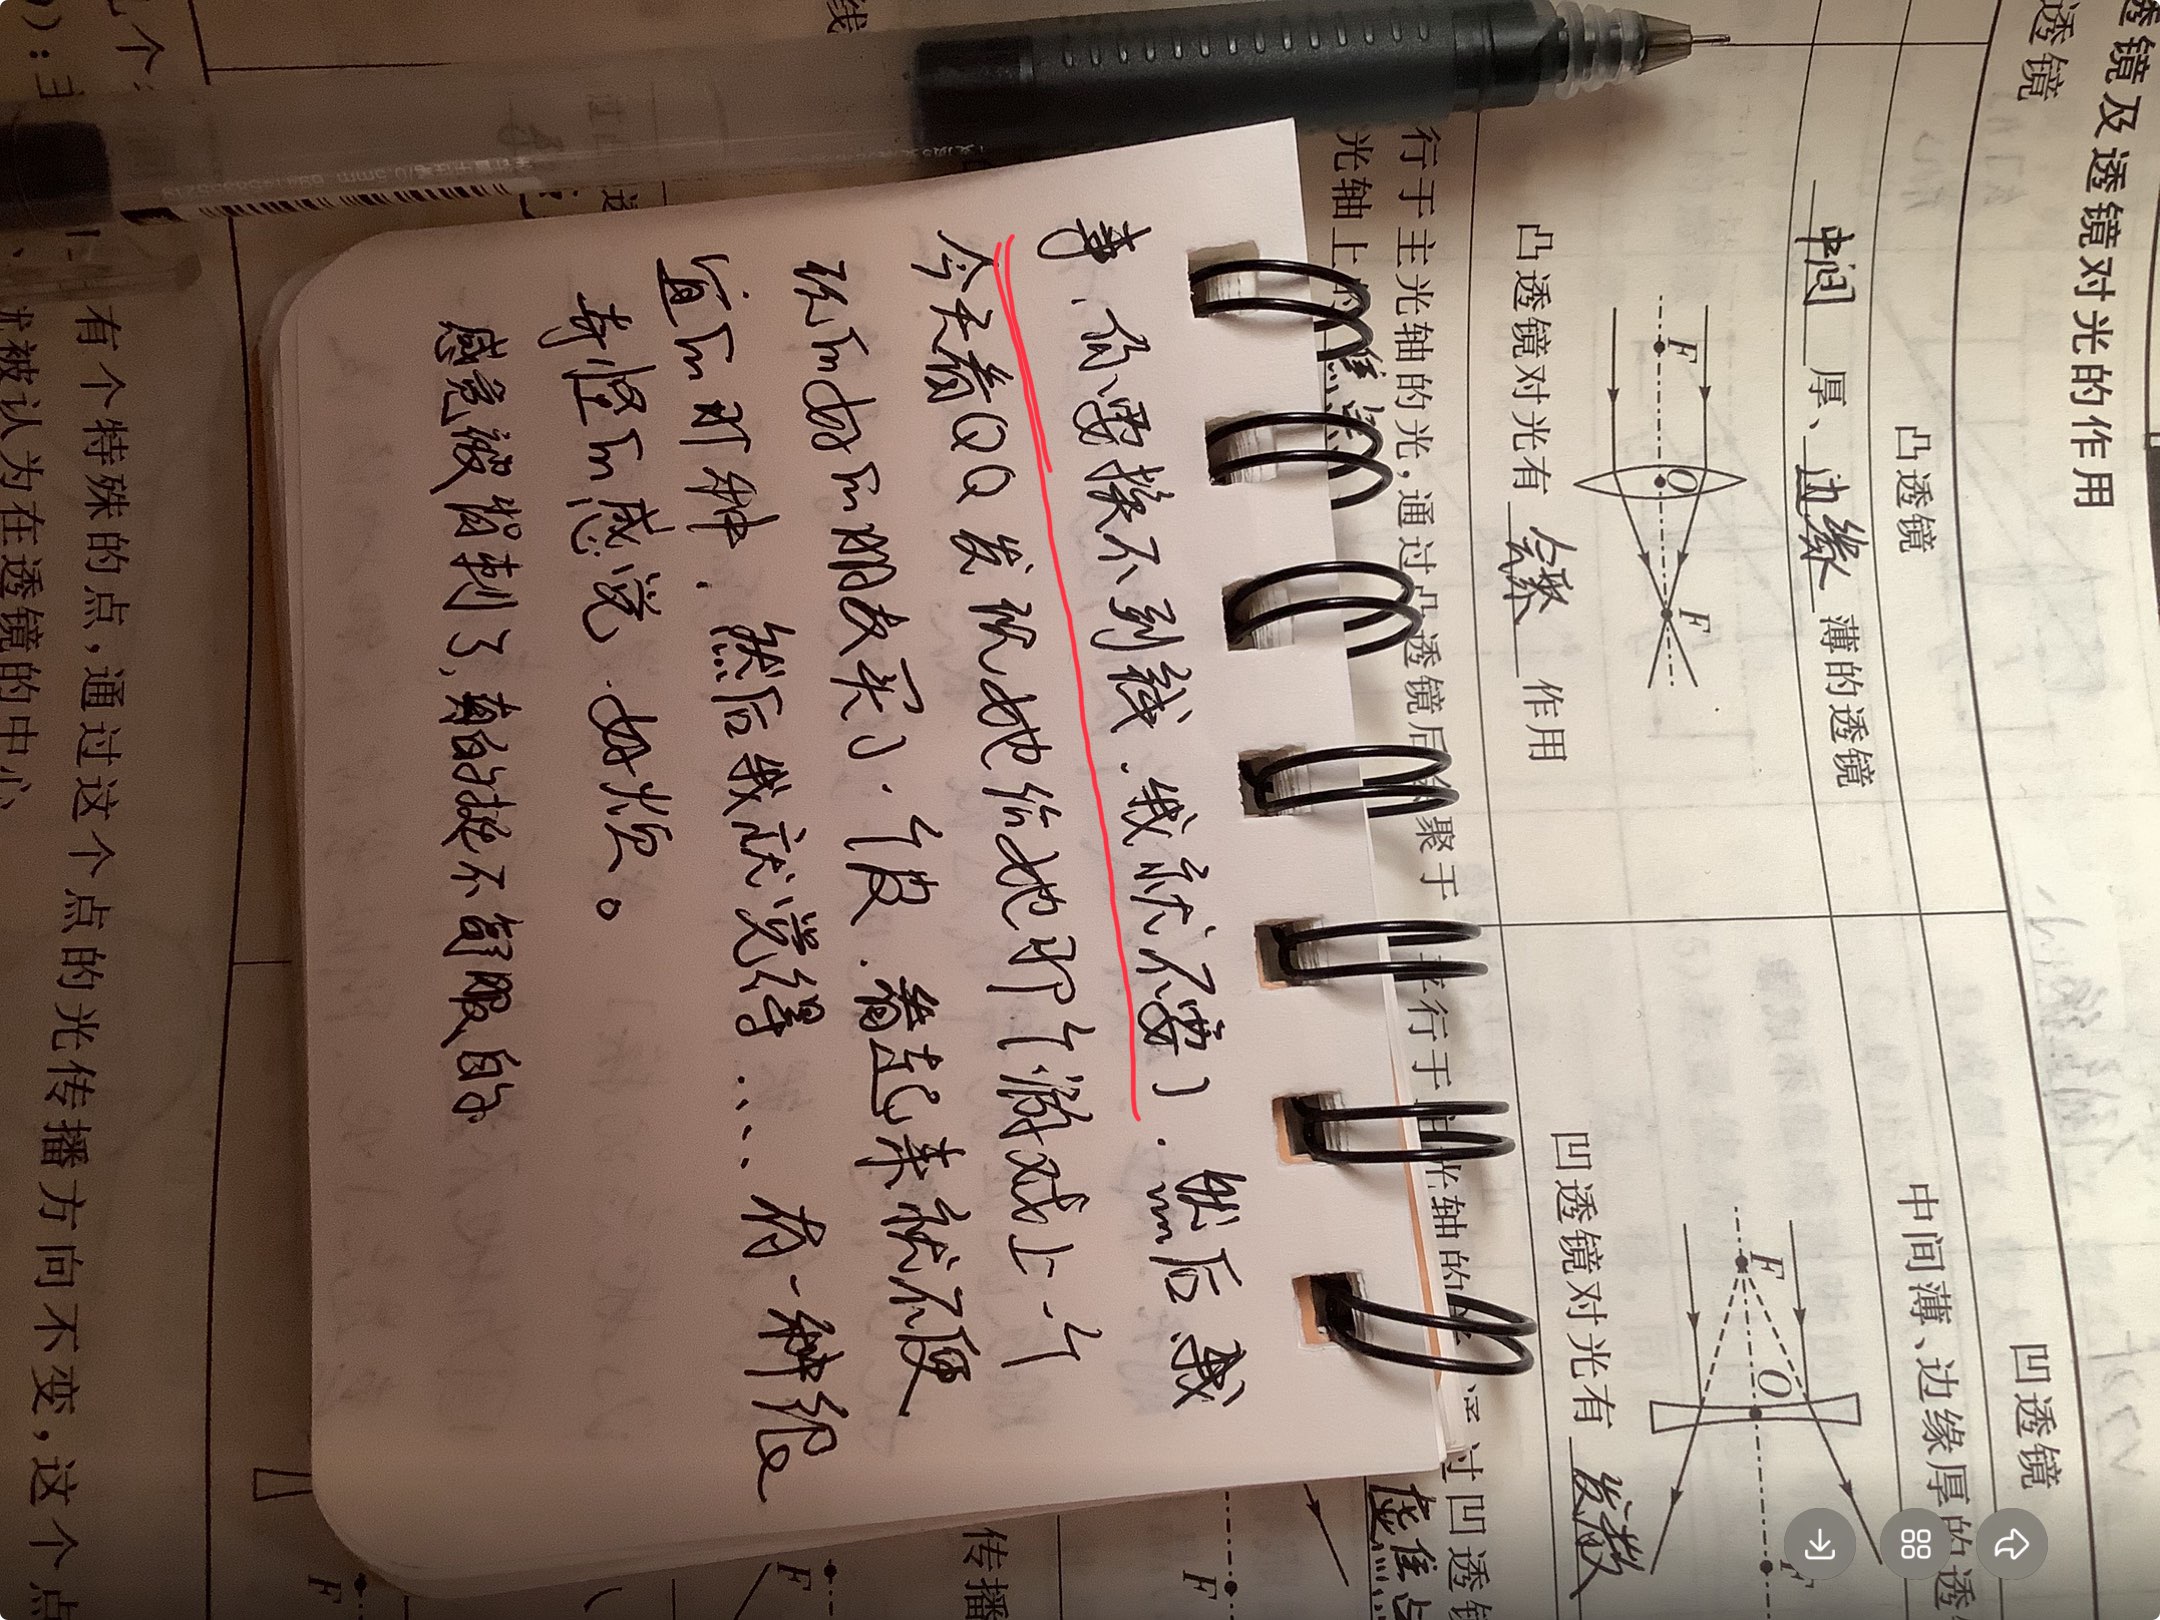 透镜及透镜对光的作用
透镜
凸透镜
凹透镜
中间 厚、边缘 薄的透镜
中间薄、边缘厚的透
F
O
F
F
O
F
凸透镜对光有 会聚 作用
凹透镜对光有 发散
行于主光轴的光，通过凸透镜后
聚于
光轴上的
焦点
平行于
光轴的
过凹透镜
虚焦点
事，你要换不到钱，我就不要了，然后我
今天看QQ发现她给她那个游戏上一个
玩的好的朋友买了个皮，看起来就不便
宜的那种，然后我就觉得....有一种很
奇怪的感觉，好烦。
感觉被背刺了，真的挺不舒服的
传播
F
F
F
有个特殊的点，通过这个点的光传播方向不变，这个点
被认为在透镜的中心